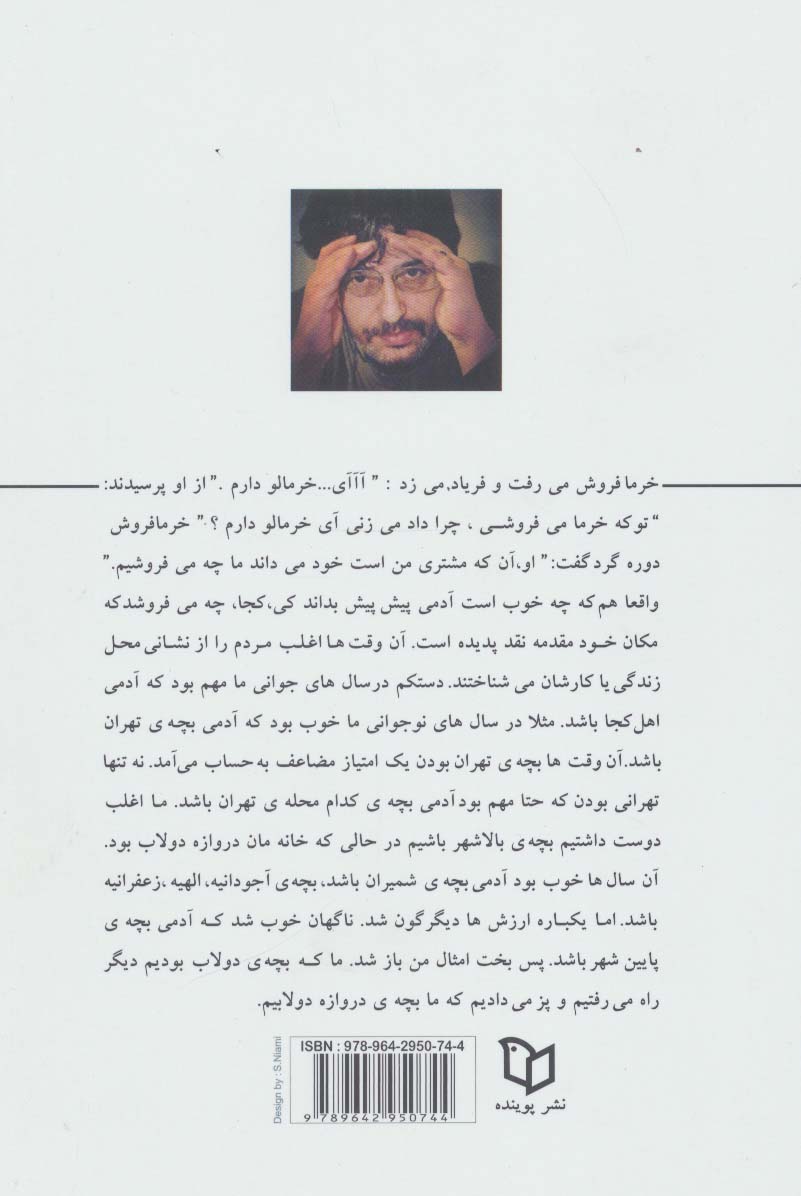 خرما فروش می رفت و فریاد می زد : " آآآی...خرمالو دارم ." از او پرسیدند:
“ توکه خرما می فروشی ، چرا داد می زنی آی خرمالو دارم ؟ " خرمافروش
دوره گرد گفت:" او،آن که مشتری من است خود می داند ما چه می فروشیم."
واقعا هم که چه خوب است آدمی پیش پیش بداند کی،کجا، چه می فروشدکه
مکان خود مقدمه نقد پدیده است. آن وقت ها اغلب مردم را از نشانی محل
زندگی یا کارشان می شناختند. دستکم در سال های جوانی ما مهم بود که آدمی
اهل کجا باشد. مثلا در سال های نوجوانی ما خوب بود که آدمی بچه ی تهران
باشد.آن وقت ها بچه ی تهران بودن یک امتیاز مضاعف به حساب می‌آمد. نه تنها
تهرانی بودن که حتا مهم بود آدمی بچه ی کدام محله ی تهران باشد. ما اغلب
دوست داشتیم بچه ی بالاشهر باشیم در حالی که خانه مان دروازه دولاب بود.
آن سال ها خوب بود آدمی بچه ی شمیران باشد، بچه ی آجودانیه، الهیه ،زعفرانیه
باشد. اما یکباره ارزش ها دیگرگون شد. ناگهان خوب شد که آدمی بچه ی
پایین شهر باشد. پس بخت امثال من باز شد. ما که بچه ی دولاب بودیم دیگر
راه می رفتیم و پز می دادیم که ما بچه ی دروازه دولابیم.
Design by : S.Niami
ISBN : 978-964-2950-74-4
9 789642 950744
نشر پوینده